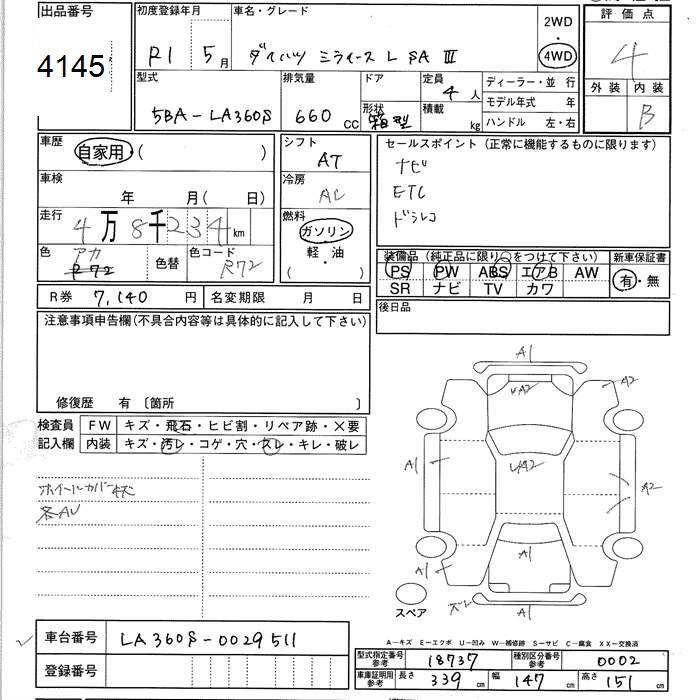 出品番号 初度登録年月 車名・グレード 2WD 評価点
4145 R1 5月 ダイハツ ミライース L SA Ⅲ 4WD 4
型式 排気量 ドア 定員 4人 ディーラー・並 行 外装 内装
5BA-LA360S 660 cc 形状 箱型 積載 kg モデル年式 年 B
ハンドル 左・右
車歴 自家用・( ) シフト AT セールスポイント (正常に機能するものに限ります)
車検 年 月( 日) 冷房 AC ナビ
走行 4万8千234km 燃料 ガソリン ETC
軽・油 ドラレコ
( )
色 アカ R72 色替 色コード R72
装備品 (純正品に限り○をつけて下さい) 新車保証書
PS PW ABS エアB AW 有・無
SR ナビ TV カワ
R券 7,140 円 名変期限 月 日 後日品
注意事項申告欄(不具合内容等は具体的に記入して下さい)
修復歴 有 〔箇所 〕
検査員 FW キズ・飛石・ヒビ割・リペア跡・X要
記入欄 内装 キズ・汚レ・コゲ・穴・スレ・キレ・破レ
ホイールカバーキズ
各AU
A1
UA2
A2
A1
UA2
A2
A1
A1
ズレ
A1
スペア
A-キズ E-エクボ U-凹み W-補修跡 S-サビ C-腐食 XX-交換済
車台番号 LA360S-0029511
登録番号
型式指定番号 参考 18737 種別区分番号 参考 0002
車庫証明用 参考 長さ 339 cm 幅 147 cm 高さ 151 cm